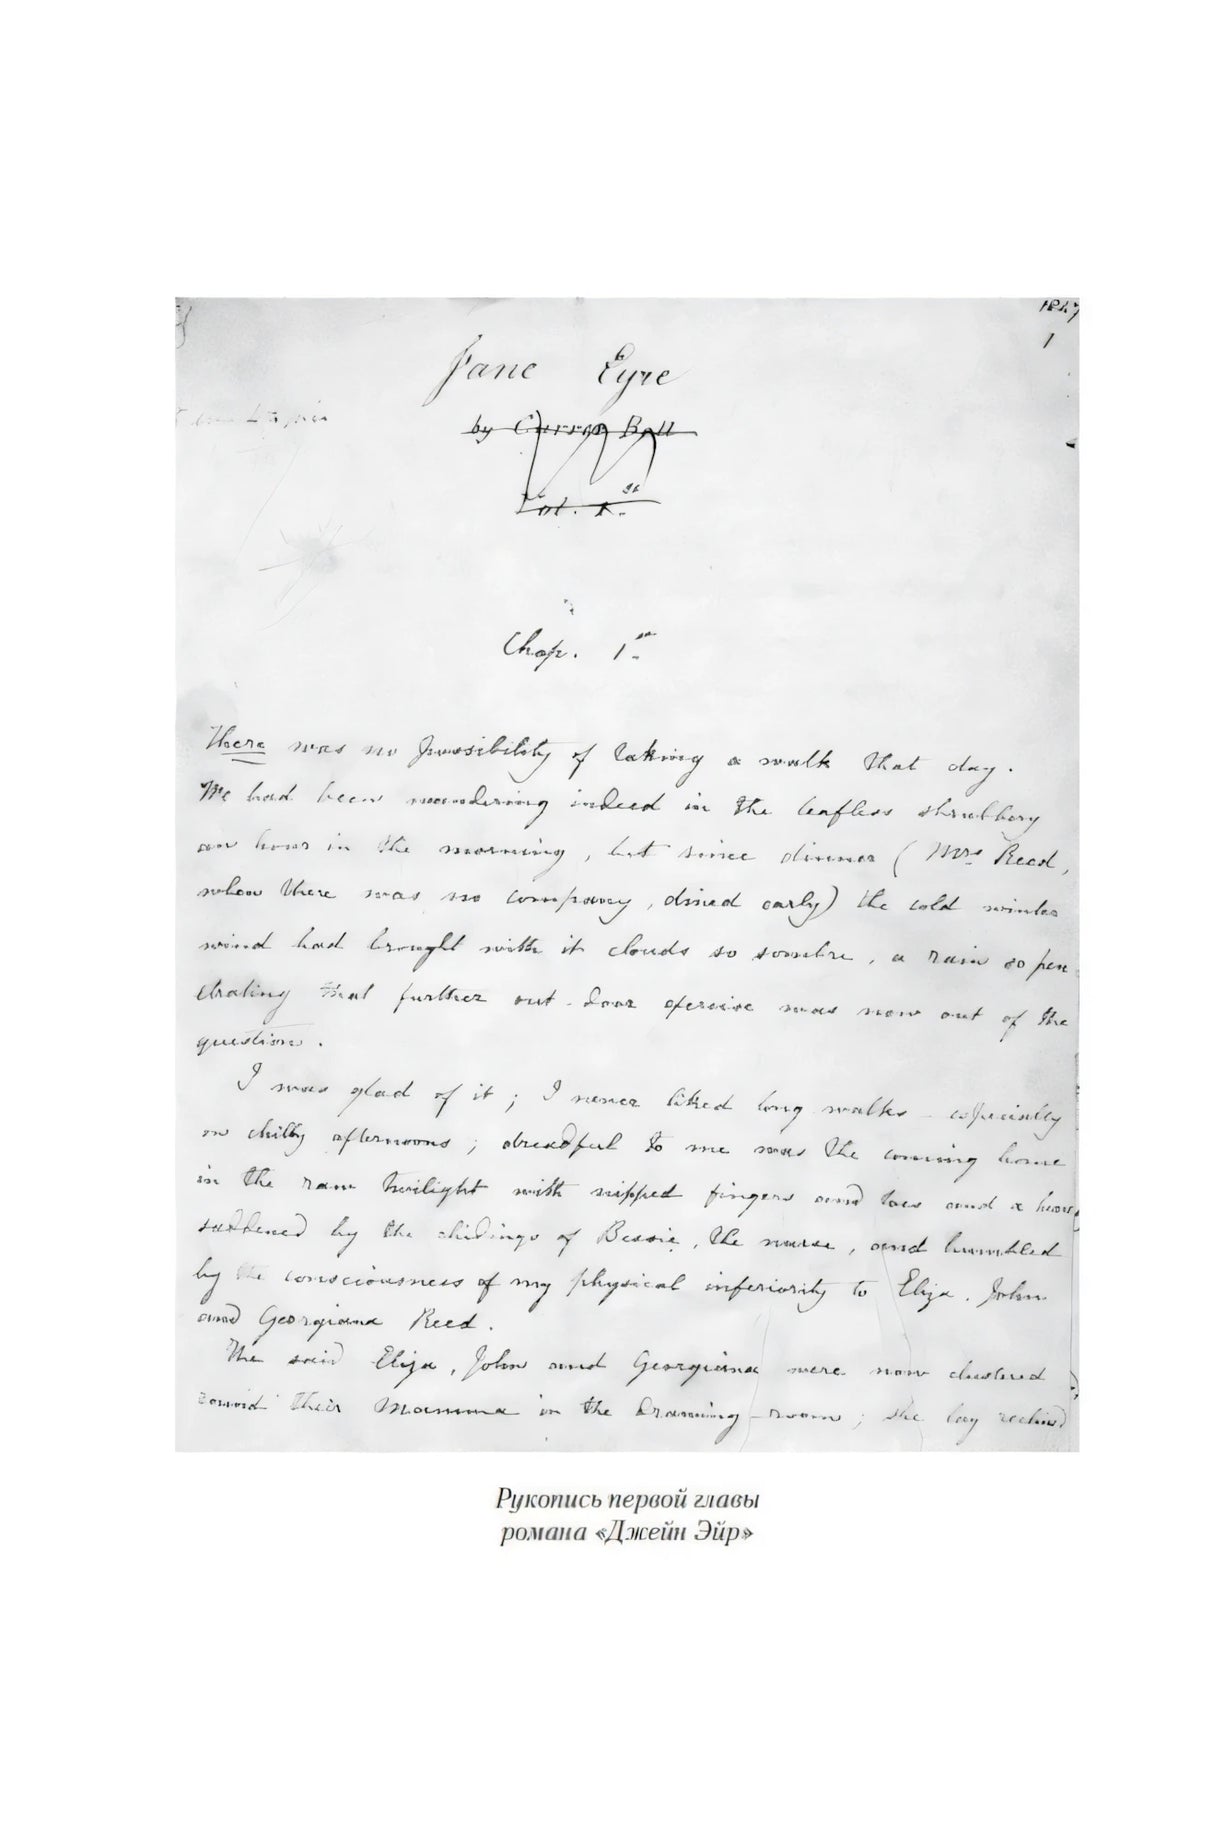 1847
1
Jane Eyre
by Currer Bell
Vol. 1.st
Chap. 1st
There was no possibility of taking a walk that day.
We had been wandering indeed in the leafless shrubbery
an hour in the morning, but since dinner (Mrs Reed,
when there was no company, dined early) the cold winter
wind had brought with it clouds so sombre, a rain so pen
etrating that further out-door exercise was now out of the
question.
I was glad of it; I never liked long walks - especially
on chilly afternoons; dreadful to me was the coming home
in the raw twilight with nipped fingers and toes and a heart
saddened by the chidings of Bessie, the nurse, and humbled
by the consciousness of my physical inferiority to Eliza, John
and Georgiana Reed.
The said Eliza, John and Georgiana were now clustered
round their Mamma in the drawing-room; she lay reclined
Рукопись первой главы
романа «Джейн Эйр»